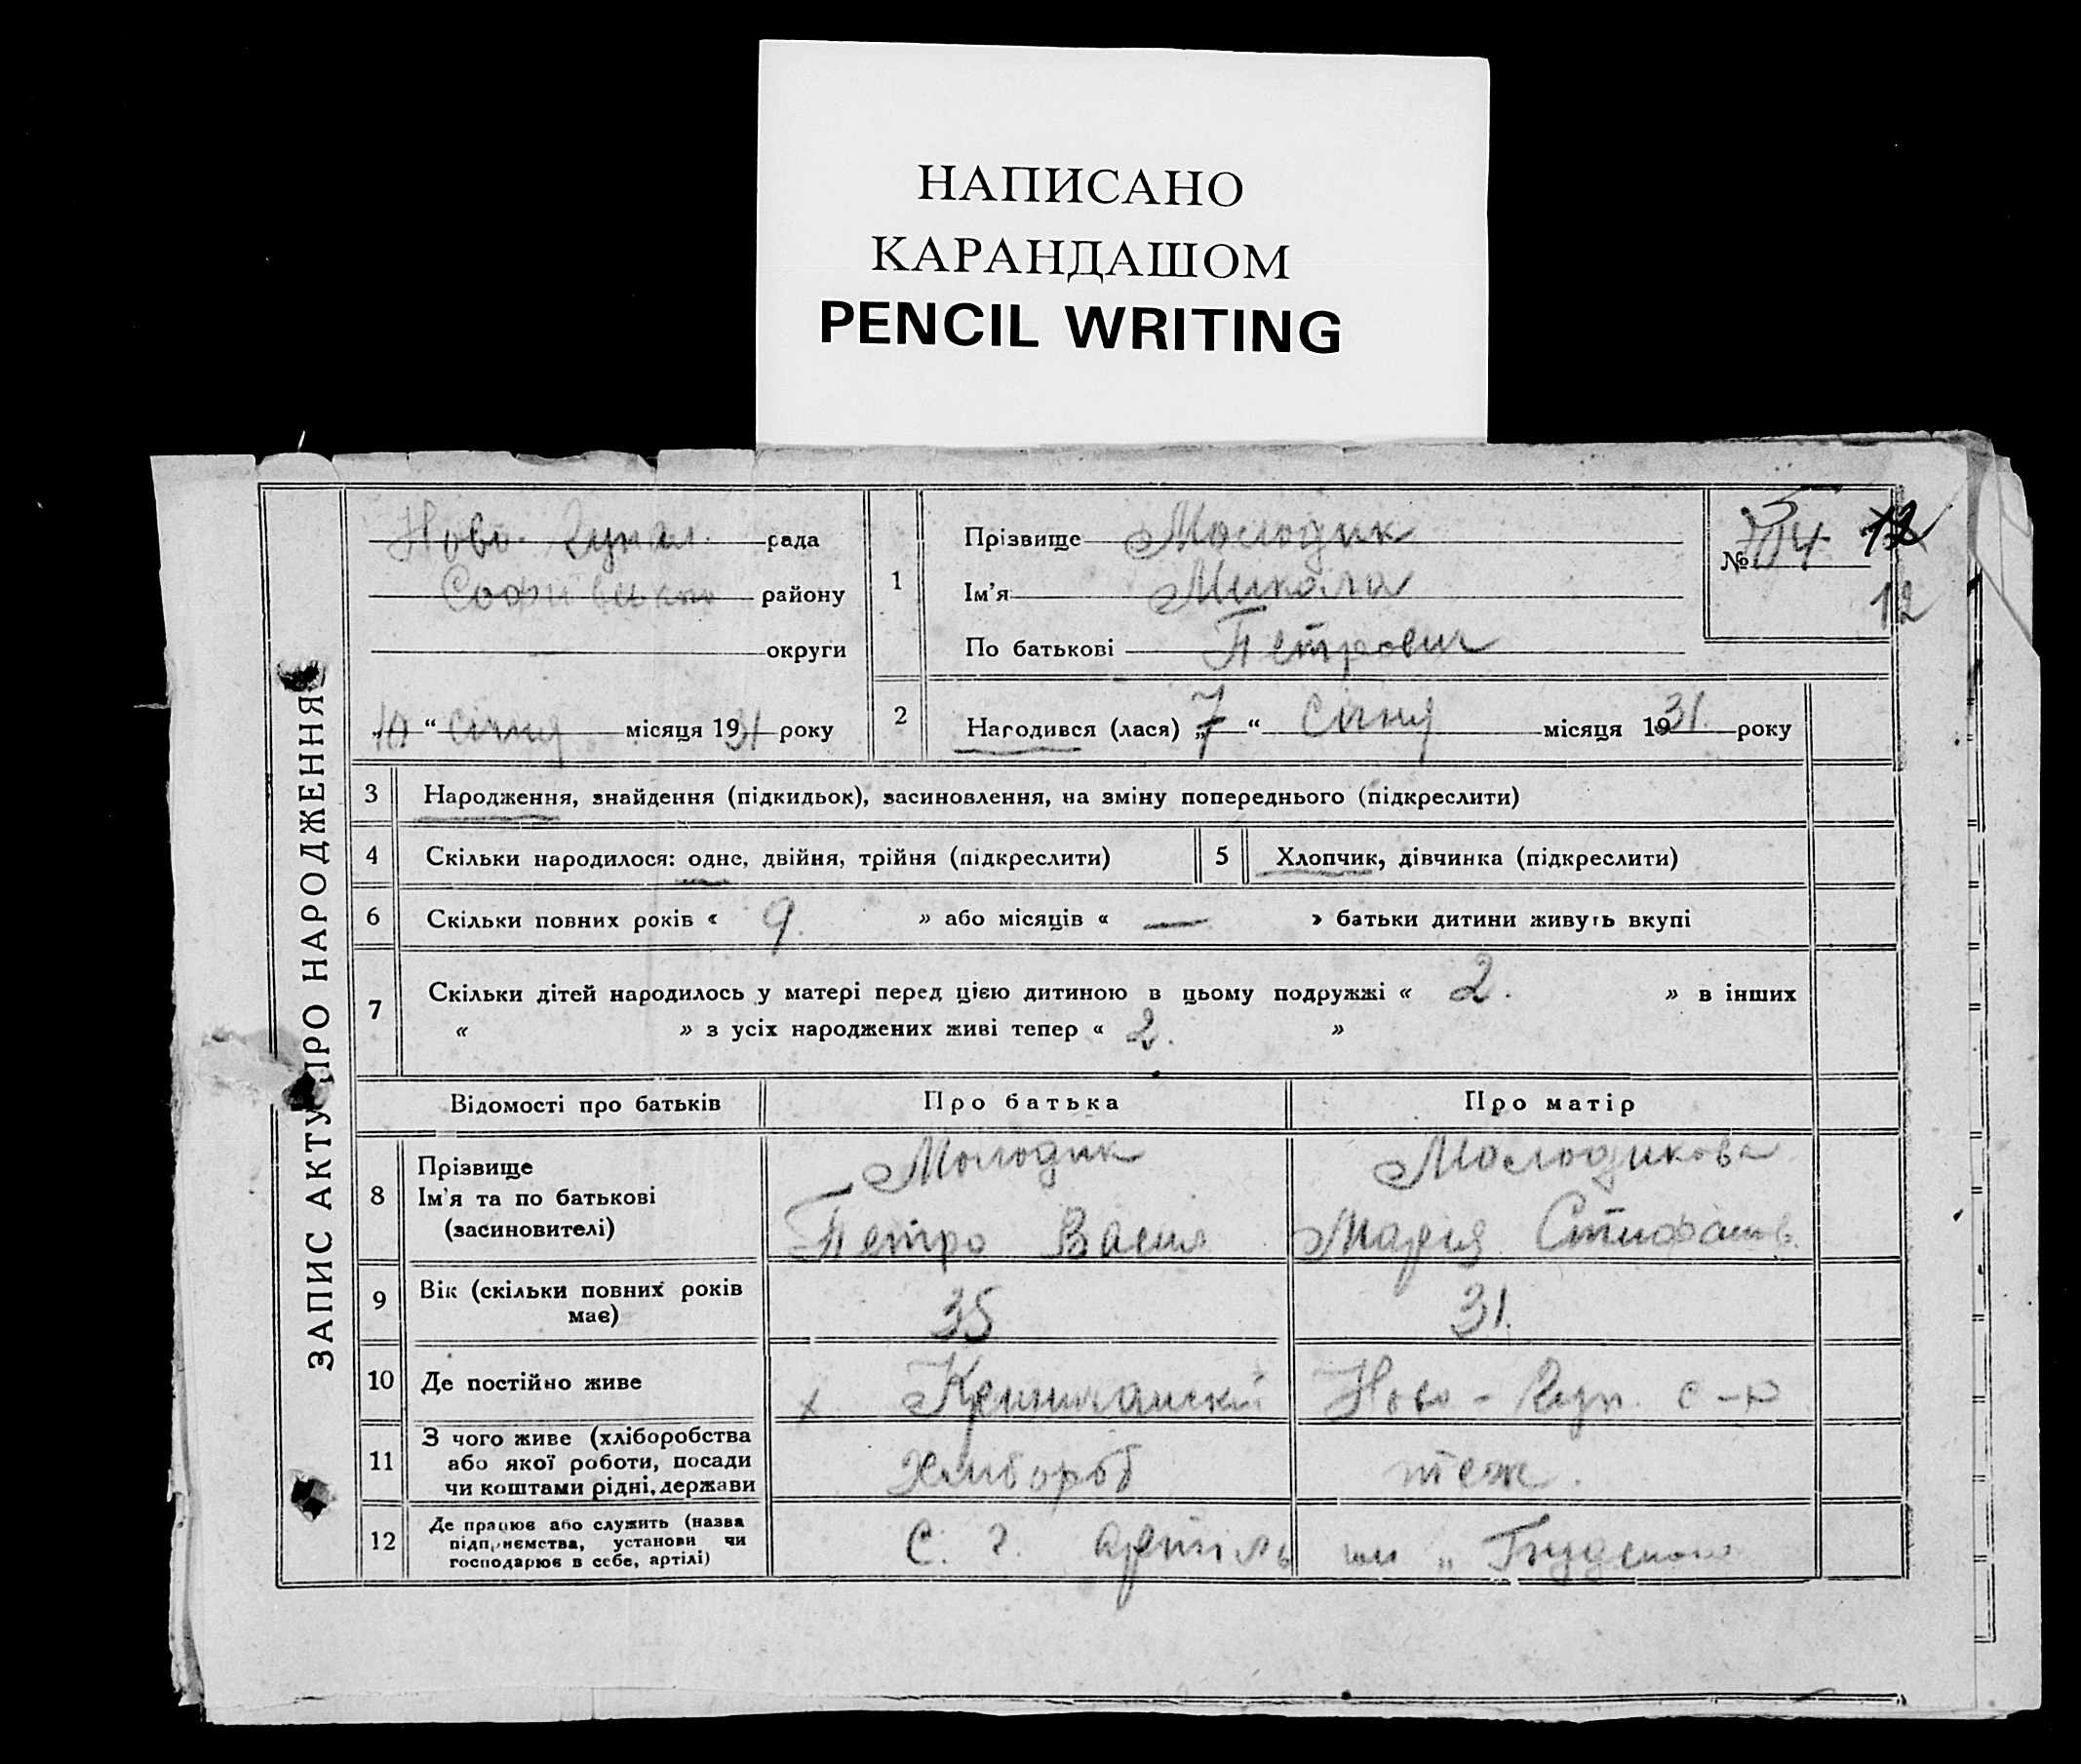 НАПИСАНО
КАРАНДАШОМ
PENCIL WRITING
ЗАПИС АКТУ ПРО НАРОДЖЕННЯ
Ново- рада
району
округи
10 “ січня місяця 1931 року
1
Прізвище Молодик
Ім'я Микола
По батькові Петрович
№ 12
12
2 Народився (лася) „7“ січня місяця 1931. року
3 Народження, знайдення (підкидьок), засиновлення, на зміну попереднього (підкреслити)
4 Скільки народилося: одне, двійня, трійня (підкреслити) 5 Хлопчик, дівчинка (підкреслити)
6 Скільки повних років « 9. » або місяців « — » батьки дитини живуть вкупі
7 Скільки дітей народилось у матері перед цією дитиною в цьому подружжі « 2. » в інших
« » з усіх народжених живі тепер « 2. »
Відомості про батьків Про батька Про матір
8 Прізвище
Ім'я та по батькові
(засиновителі)
Молодик Молодикова
Петро Васил Марія
9 Вік (скільки повних років
має)
35 31.
10 Де постійно живе х. Ново - с-р
11 З чого живе (хліборобства
або якої роботи, посади
чи коштами рідні, держави
Хлібороб теж.
12 Де працює або служить (назва
підприємства, установи чи
господарює в себе, артілі)
С. г. артіль